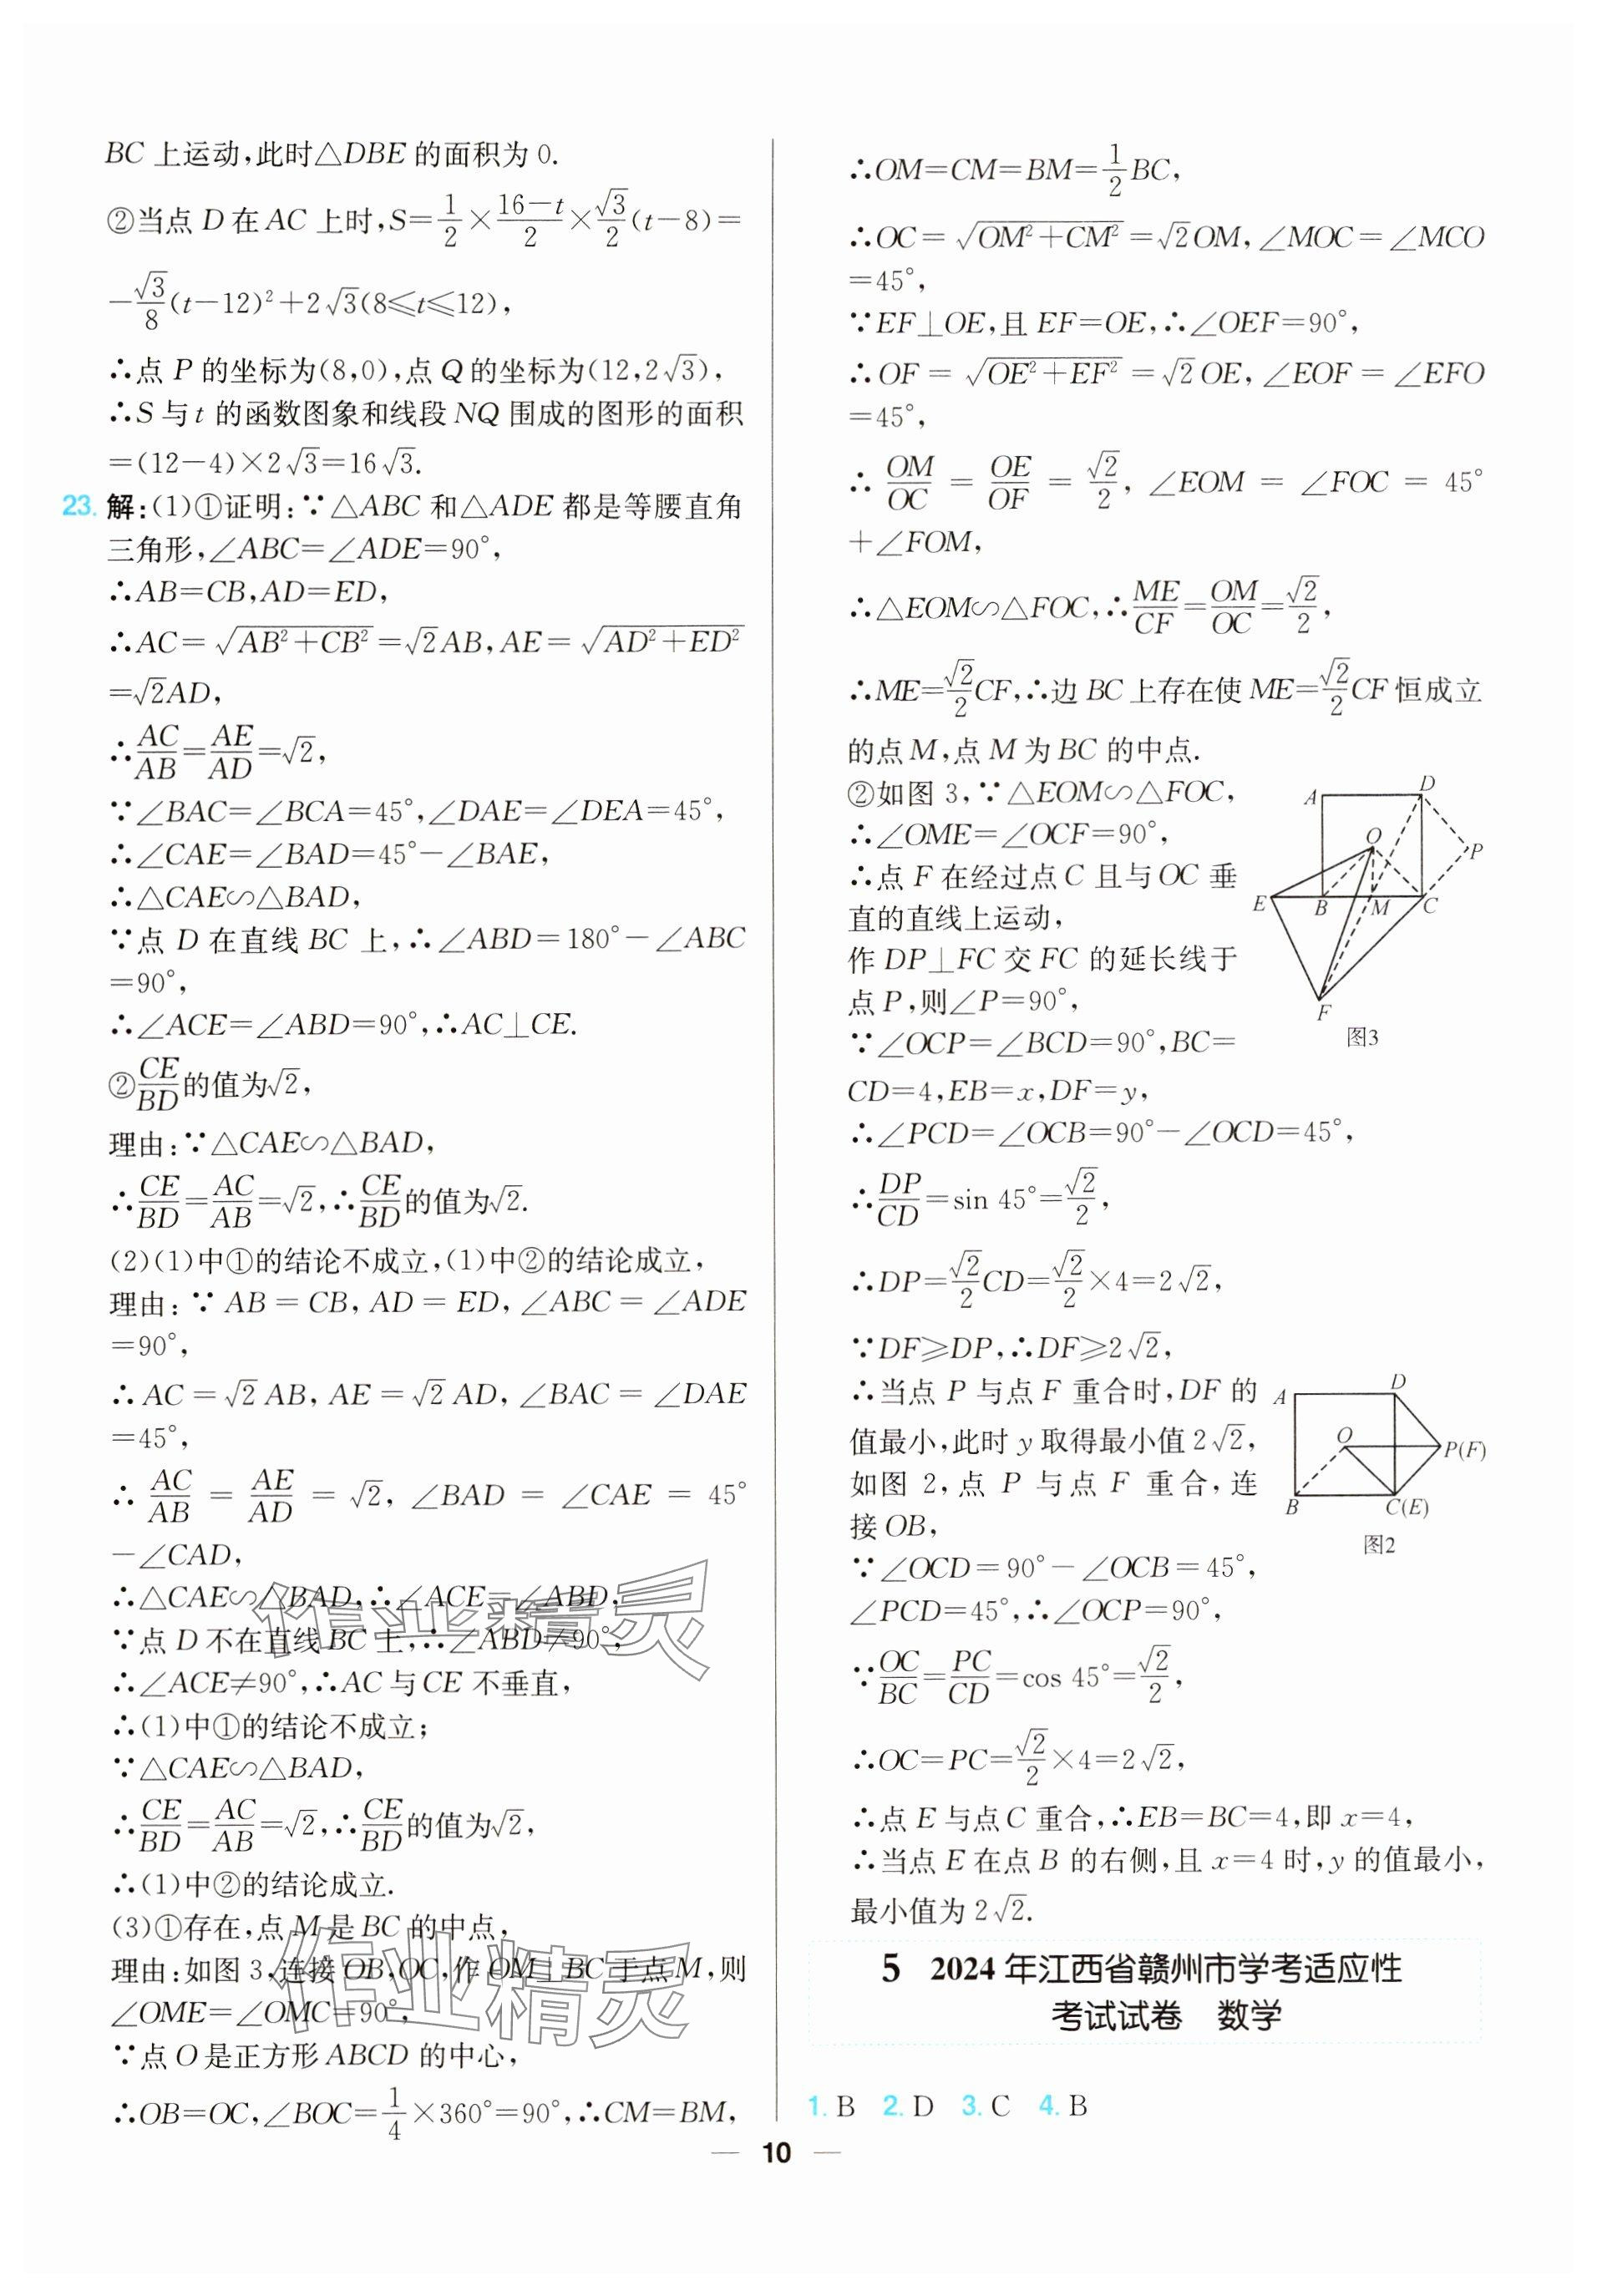 BC 上运动,此时△DBE 的面积为 0.
②当点 D 在 AC 上时,S=1/2×(16-t)/2×√3/2(t-8)=
-√3/8(t-12)²+2√3(8≤t≤12),
∴点 P 的坐标为(8,0),点 Q 的坐标为(12,2√3),
∴S 与 t 的函数图象和线段 NQ 围成的图形的面积
=(12-4)×2√3=16√3.
23. 解:(1)①证明:∵△ABC 和△ADE 都是等腰直角
三角形,∠ABC=∠ADE=90°,
∴AB=CB,AD=ED,
∴AC=√(AB²+CB²)=√2AB,AE=√(AD²+ED²)
=√2AD,
∴AC/AB=AE/AD=√2,
∵∠BAC=∠BCA=45°,∠DAE=∠DEA=45°,
∴∠CAE=∠BAD=45°-∠BAE,
∴△CAE∽△BAD,
∵点 D 在直线 BC 上,∴∠ABD=180°-∠ABC
=90°,
∴∠ACE=∠ABD=90°,∴AC⊥CE.
②CE/BD的值为√2,
理由:∵△CAE∽△BAD,
∴CE/BD=AC/AB=√2,∴CE/BD的值为√2.
(2)(1)中①的结论不成立,(1)中②的结论成立,
理由:∵AB=CB,AD=ED,∠ABC=∠ADE
=90°,
∴AC=√2AB,AE=√2AD,∠BAC=∠DAE
=45°,
∴AC/AB=AE/AD=√2,∠BAD=∠CAE=45°
-∠CAD,
∴△CAE∽△BAD,∴∠ACE=∠ABD,
∵点 D 不在直线 BC 上,∴∠ABD≠90°,
∴∠ACE≠90°,∴AC 与 CE 不垂直,
∴(1)中①的结论不成立;
∵△CAE∽△BAD,
∴CE/BD=AC/AB=√2,∴CE/BD的值为√2,
∴(1)中②的结论成立.
(3)①存在,点 M 是 BC 的中点,
理由:如图 3,连接 OB,OC,作 OM⊥BC 于点 M,则
∠OME=∠OMC=90°,
∵点 O 是正方形 ABCD 的中心,
∴OB=OC,∠BOC=1/4×360°=90°,∴CM=BM,
∴OM=CM=BM=1/2BC,
∴OC=√(OM²+CM²)=√2OM,∠MOC=∠MCO
=45°,
∵EF⊥OE,且 EF=OE,∴∠OEF=90°,
∴OF=√(OE²+EF²)=√2OE,∠EOF=∠EFO
=45°,
∴OM/OC=OE/OF=√2/2,∠EOM=∠FOC=45°
+∠FOM,
∴△EOM∽△FOC,∴ME/CF=OM/OC=√2/2,
∴ME=√2/2CF,∴边 BC 上存在使 ME=√2/2CF 恒成立
的点 M,点 M 为 BC 的中点.
②如图 3,∵△EOM∽△FOC,
∴∠OME=∠OCF=90°,
∴点 F 在经过点 C 且与 OC 垂
直的直线上运动,
作 DP⊥FC 交 FC 的延长线于
点 P,则∠P=90°,
∵∠OCP=∠BCD=90°,BC=
CD=4,EB=x,DF=y,
A D O P E B M C F
图3
∴∠PCD=∠OCB=90°-∠OCD=45°,
∴DP/CD=sin 45°=√2/2,
∴DP=√2/2CD=√2/2×4=2√2,
∵DF≥DP,∴DF≥2√2,
∴当点 P 与点 F 重合时,DF 的
值最小,此时 y 取得最小值 2√2,
如图 2,点 P 与点 F 重合,连
接 OB,
A D O P(F) B C(E)
图2
∵∠OCD=90°-∠OCB=45°,
∠PCD=45°,∴∠OCP=90°,
∵OC/BC=PC/CD=cos 45°=√2/2,
∴OC=PC=√2/2×4=2√2,
∴点 E 与点 C 重合,∴EB=BC=4,即 x=4,
∴当点 E 在点 B 的右侧,且 x=4 时,y 的值最小,
最小值为 2√2.
5 2024 年江西省赣州市学考适应性
考试试卷 数学
1. B 2. D 3. C 4. B
— 10 —
作业精灵
作业精灵